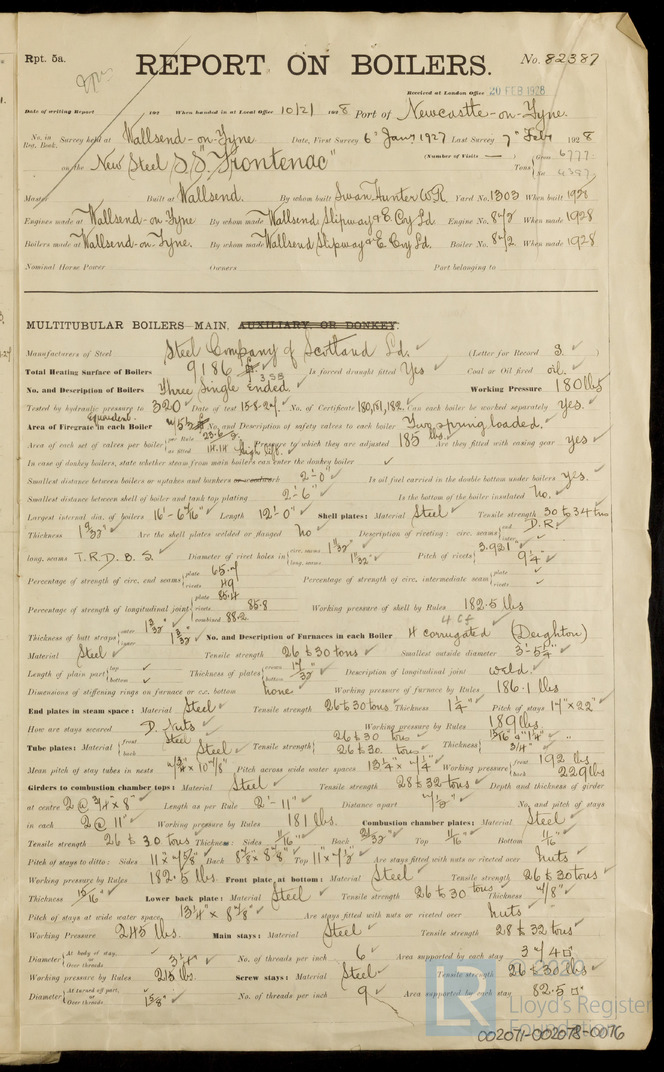 Rpt. 5a.
REPORT ON BOILERS.
No. 82387
Received at London Office 20 FEB 1928
Date of writing Report 192 When handed in at Local Office 10/2/ 1928 Port of Newcastle-on-Tyne.
No. in Reg. Book. Survey held at Wallsend-on-Tyne Date, First Survey 6th Jany 1927 Last Survey 7th Feby 1928
on the New Steel S.S. "Frontenac" (Number of Visits — ) Gross 6777
Tons Net 4397
Master Built at Wallsend. By whom built Swan Hunter W.R. Yard No. 1303 When built 1928
Engines made at Wallsend-on-Tyne By whom made Wallsend Slipway & E. Coy Ld Engine No. When made 1928
Boilers made at Wallsend-on-Tyne. By whom made Wallsend Slipway & E. Coy Ld. Boiler No. When made 1928
Nominal Horse Power Owners Port belonging to
MULTITUBULAR BOILERS—MAIN, AUXILIARY, OR DONKEY.
Manufacturers of Steel Steel Company of Scotland Ld. (Letter for Record S. )
Total Heating Surface of Boilers 9186 Is forced draught fitted Yes Coal or Oil fired oil.
No. and Description of Boilers Three Single ended. Working Pressure 180 lbs
Tested by hydraulic pressure to 320 Date of test 15.8.27. No. of Certificate 180,181,182. Can each boiler be worked separately Yes.
Area of Firegrate in each Boiler equivalent No. and Description of safety valves to each boiler Two spring loaded.
Area of each set of valves per boiler per Rule as fitted Pressure to which they are adjusted 185 lbs. Are they fitted with easing gear yes
In case of donkey boilers, state whether steam from main boilers can enter the donkey boiler
Smallest distance between boilers or uptakes and bunkers or woodwork 2'-0" Is oil fuel carried in the double bottom under boilers yes.
Smallest distance between shell of boiler and tank top plating 2'-6" Is the bottom of the boiler insulated no.
Largest internal dia. of boilers 16'-6 7/16" Length 12'-0" Shell plates: Material Steel Tensile strength 30 to 34 tons
Thickness 1 9/32" Are the shell plates welded or flanged no Description of riveting: circ. seams end D.R. inter.
long. seams T.R.D.B.S. Diameter of rivet holes in circ. seams 1 11/32" long. seams 1 11/32" Pitch of rivets 3.921" 9 1/4"
Percentage of strength of circ. end seams plate 65.7 rivets 49 Percentage of strength of circ. intermediate seam plate rivets
Percentage of strength of longitudinal joint plate 85.4 rivets 85.8 combined 88.2 Working pressure of shell by Rules 182.5 lbs
Thickness of butt straps outer inner No. and Description of Furnaces in each Boiler 4 corrugated (Deighton)
Material Steel Tensile strength 26 to 30 tons Smallest outside diameter 3'-5 3/4"
Length of plain part top bottom Thickness of plates crown bottom 17/32" Description of longitudinal joint weld.
Dimensions of stiffening rings on furnace or c.c. bottom none Working pressure of furnace by Rules 186.1 lbs
End plates in steam space: Material Steel Tensile strength 26 to 30 tons Thickness 1 1/4" Pitch of stays 17" x 22"
How are stays secured D. Nuts Working pressure by Rules 189 lbs.
Tube plates: Material front Steel back Steel Tensile strength 26 to 30 tons 26 to 30 tons Thickness 15/16" & 1 1/4" 3/4"
Mean pitch of stay tubes in nests Pitch across wide water spaces 13 1/4" x 7 1/4" Working pressure front 192 lbs back 229 lbs
Girders to combustion chamber tops: Material Steel Tensile strength 28 to 32 tons Depth and thickness of girder
at centre 2 @ 3/4" x 8" Length as per Rule 2'-11" Distance apart 7 1/2" No. and pitch of stays
in each 2 @ 11" Working pressure by Rules 181 lbs. Combustion chamber plates: Material Steel
Tensile strength 26 to 30 tons Thickness: Sides 11/16" Back 21/32" Top 11/16" Bottom 11/16"
Pitch of stays to ditto: Sides 11" x 7 5/8" Back 8 7/8" x 8 7/8" Top 11" x 7 1/2" Are stays fitted with nuts or riveted over nuts
Working pressure by Rules 182.5 lbs. Front plate at bottom: Material Steel Tensile strength 26 to 30 tons
Thickness 15/16" Lower back plate: Material Steel Tensile strength 26 to 30 tons Thickness 7/8"
Pitch of stays at wide water space 13 1/4" x 8 7/8" Are stays fitted with nuts or riveted over nuts
Working Pressure 245 lbs. Main stays: Material Steel Tensile strength 28 to 32 tons
Diameter At body of stay, or Over threads 3 1/4" No. of threads per inch 6 Area supported by each stay
Working pressure by Rules Screw stays: Material Steel Tensile strength 26 to 30 lbs
Diameter At turned off part, or Over threads 1 5/8" No. of threads per inch 9 Area supported by each stay 82.5 □"
© 2020
LR
Lloyd's Register
Foundation
002071-002078-0076